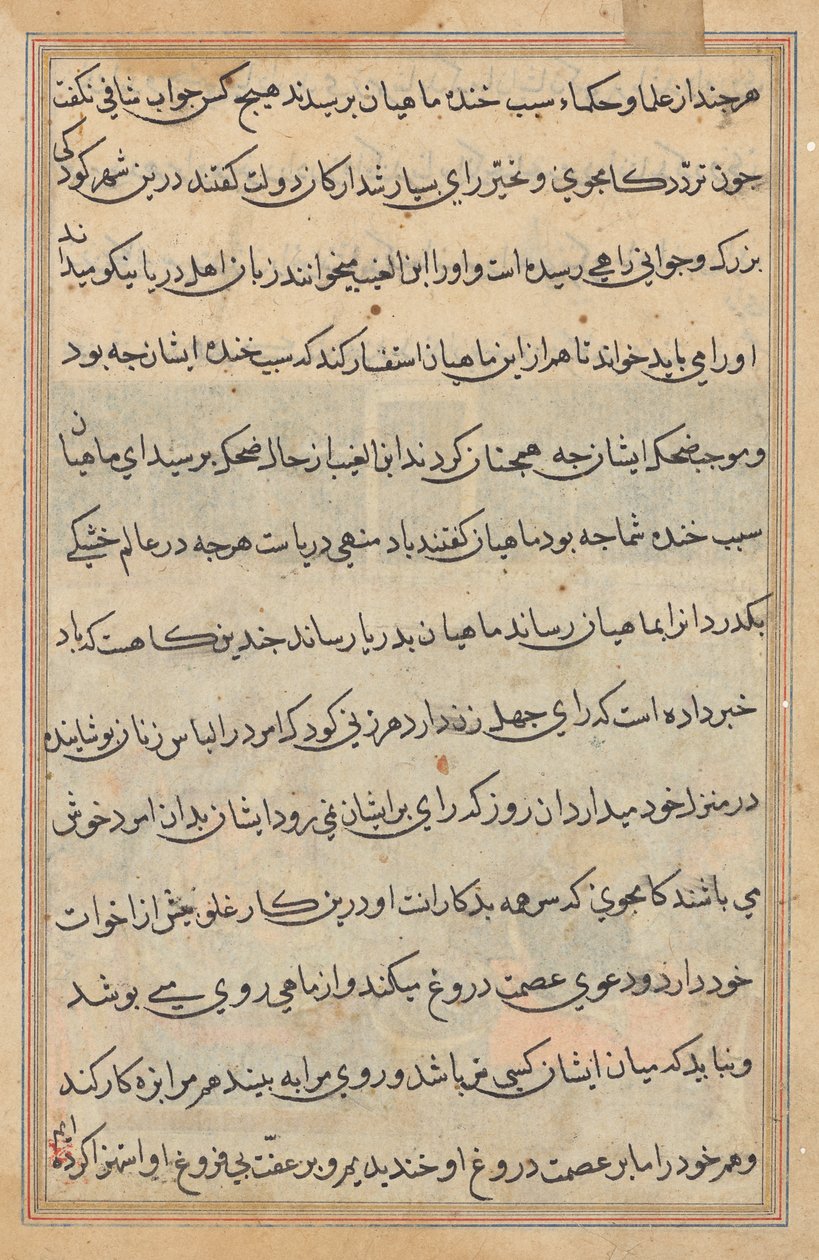 هر جند از علما و حكماء سبب خنده ماهيان برسيدند هيج كس جواب شافي نكفت
جون تردّد كامجوي و تحيّر راي بسيار شد اركان دولت كفتند درين شهر كودكي
بزرك و جواني زاهي رسيده است و او را ابن الغيب ميخوانند زبان اهل دريا نيكو ميداند
او را مي بايد خواند تا هم از اين ماهيان استفسار كند كه سبب خنده ايشان جه بود
و موجب ضحك ايشان جه همجنان كردند ابن الغيب از حال ضحك برسيد اي ماهيان
سبب خنده شما جه بود ماهيان كفتند باد منهي درياست هر جه در عالم خشكي
بكذرد انرا بماهيان رساند ماهيان بدريا رساند جندين كاهست كه باد
خبر داده است كه راي جهل زن دارد هر زني كودك امرد را لباس زنان بوشانيده
در منزل خود ميدارد ان روز كه راي بر ايشان نمي رود ايشان بدان امرد خوش
مي باشند كامجوي كه سر همه بدكارانست او درين كار غلو بيش از اخوات
خود دارد و دعوي عصمت دروغ ميكند و از ماهي روي مي بوشد
و نبايد كه ميان ايشان كسي نر باشد و روي مرا به بيند هم مرا بزه كار كند
و هم خود را ما بر عصمت دروغ او خنديديم و بر عفّت بي فروغ او استهزا كرده ايم